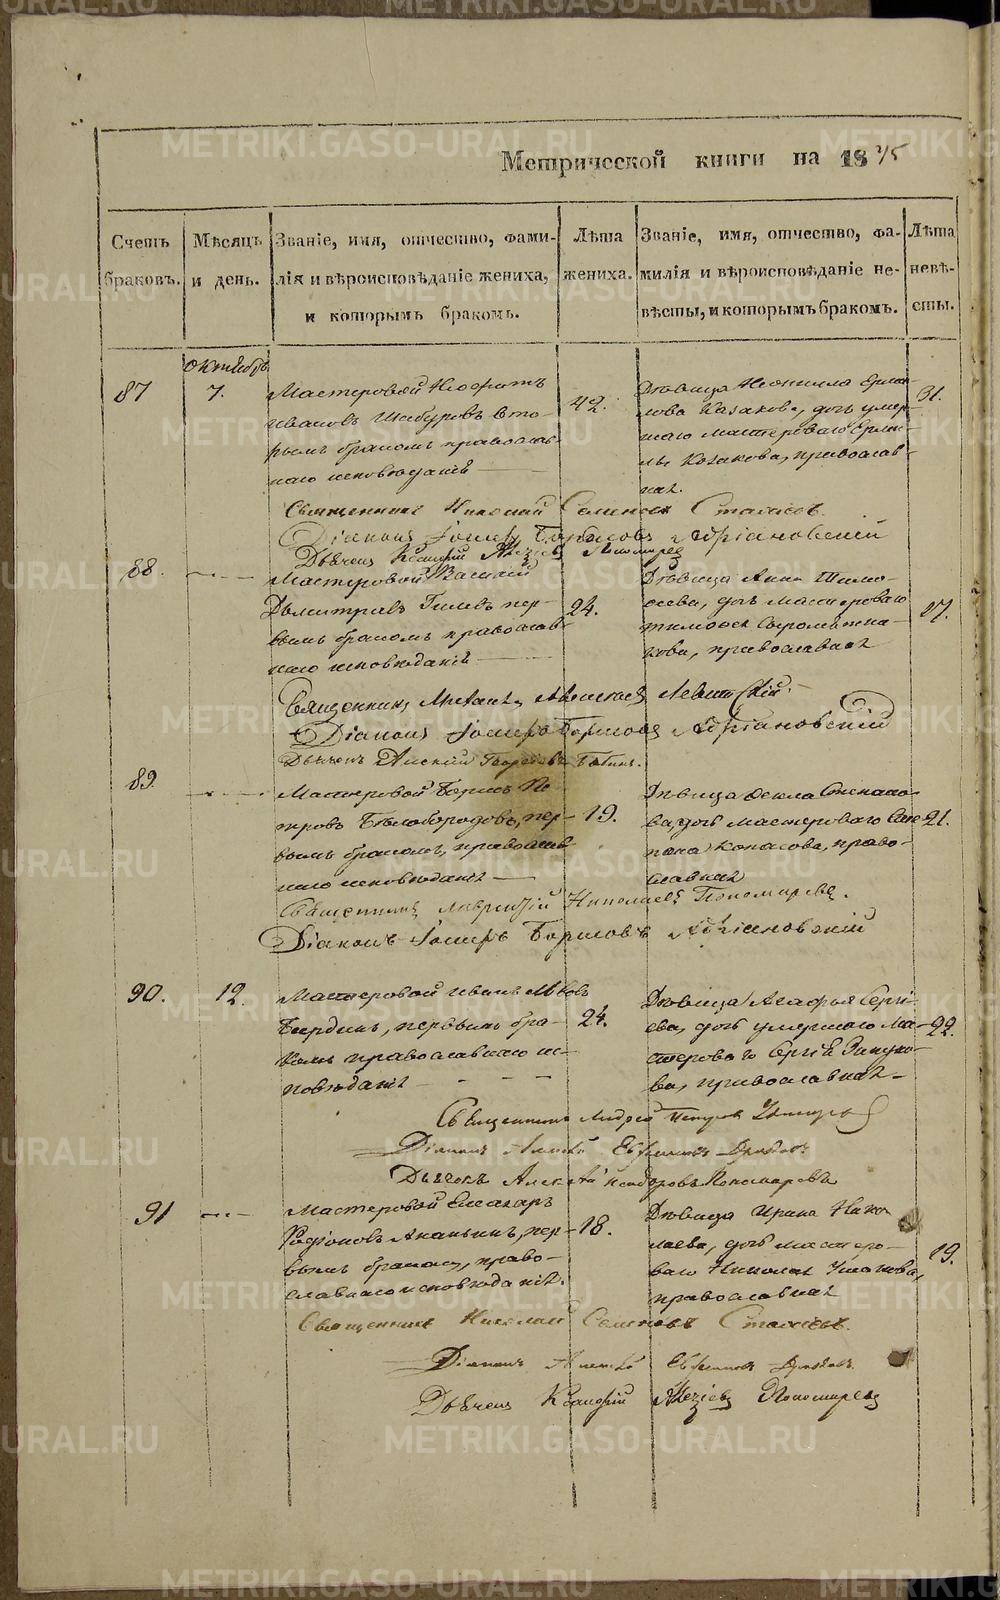 Метрической книги на 1845
Счетъ браковъ.
Мѣсяцъ и день.
Званіе, имя, отчество, фами-
лія и вѣроисповѣданіе жениха,
и которымъ бракомъ.
Лѣта жениха.
Званіе, имя, отчество, фа-
милія и вѣроисповѣданіе не-
вѣсты, и которымъ бракомъ.
Лѣта невѣ-
сты.
Октябрь
87
7.
Мастеровой Неофитъ
Ивановъ Шабуровъ вто-
рымъ бракомъ православ-
наго исповѣданія
42.
Дѣвица Неонилла Ерми-
лова Казакова, дочь умер-
шаго мастероваго Ерми-
лы Козакова, православ-
ная.
31.
Священникъ Николай Семеновъ Стахіевъ.
Діаконъ Іосифъ Борисовъ Адріановскій
Дьячекъ Пономаревъ
88.
Мастеровой Василій
Дьмитріевъ Гилевъ пер-
вымъ бракомъ православ-
наго исповѣданія
24.
Дѣвица Анна Тимо-
феева, дочь мастероваго
Тимофея Сыромятни-
кова, православная
17.
Священникъ Левитскій.
Діаконъ Іосифъ Борисовъ Адріановскій
Дьячекъ Алексій Георгіевъ Бабинъ.
89.
Мастеровой Борисъ Пе-
тровъ Бѣлобородовъ, пер-
вымъ бракомъ, православ-
наго исповѣданія
19.
Дѣвица Фекла Степано-
ва, дочь мастероваго Сте-
пана Копасова, право-
славная
21.
Священникъ Лаврентій Николаевъ Пономаревъ.
Діаконъ Іосифъ Борисовъ Адріановскій
90.
12.
Мастеровой Иванъ
Бердинъ, первымъ бра-
комъ православнаго ис-
повѣданія
24.
Дѣвица Агафья Сергі-
ева, дочь умершаго Ма-
стероваго Сергія
православная
22.
Священникъ Андрей Петровъ
Діаконъ Алексій
Дьячекъ Алексѣй Ѳеодоровъ Пономаревъ
91
Мастеровой Елеазаръ
Родіоновъ Ананьинъ, пер-
вымъ бракомъ, право-
славнаго исповѣданія.
18.
Дѣвица Ирина Нико-
лаева, дочь мастеро-
ваго Николая Ушакова,
православная
19.
Священникъ Николай Семеновъ Стахіевъ.
Діаконъ Алексій
Дьячекъ Пономаревъ
METRIKI.GASO-URAL.RU